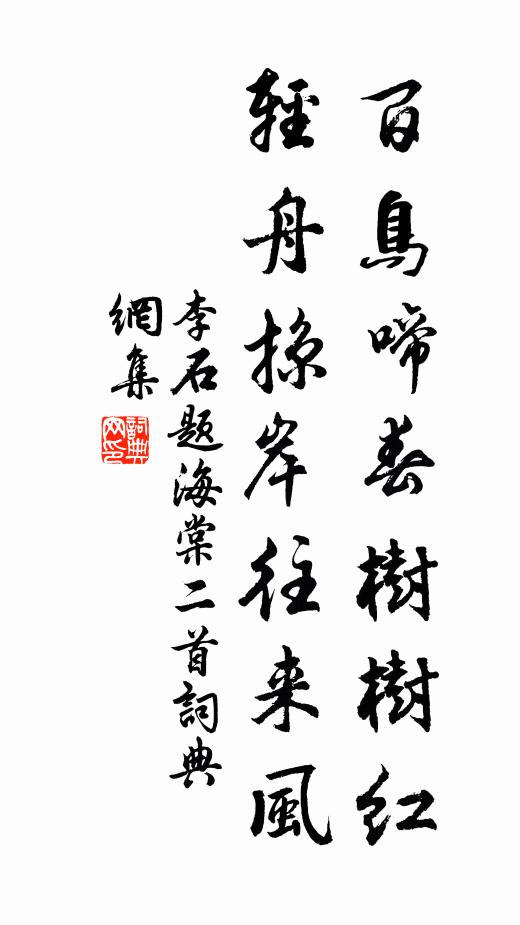 百鳥啼春樹樹紅
輕舟掠岸往来風
李石題海棠二首詞典
網集
詞典網印